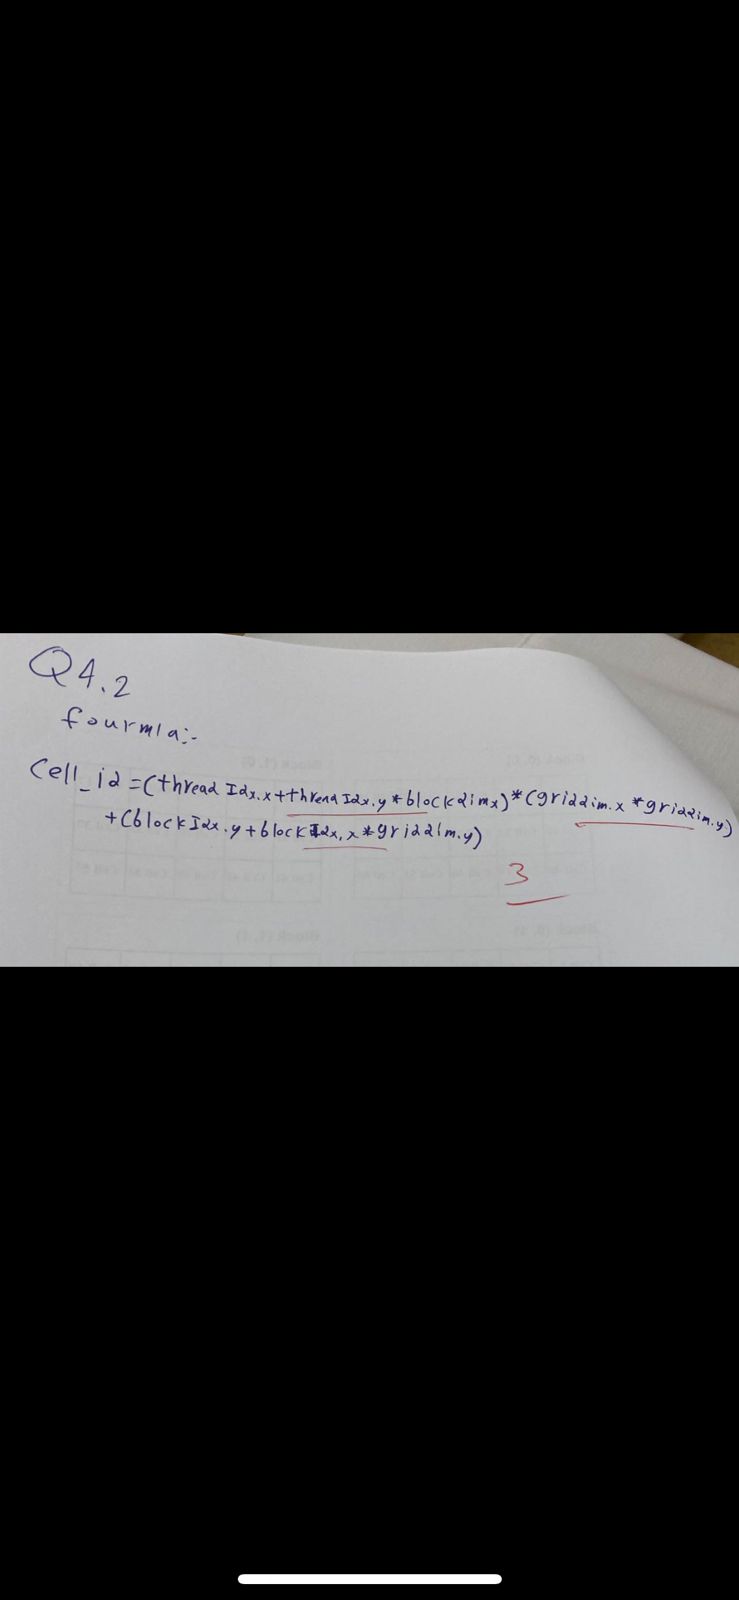 Q4.2
fourmla:-
Cell_id=(threadIdx.x+threadIdx.y*blockdimx)*(griddim.x*griddim.y)
+(blockIdx.y+blockIdx.x*griddim.y)
3